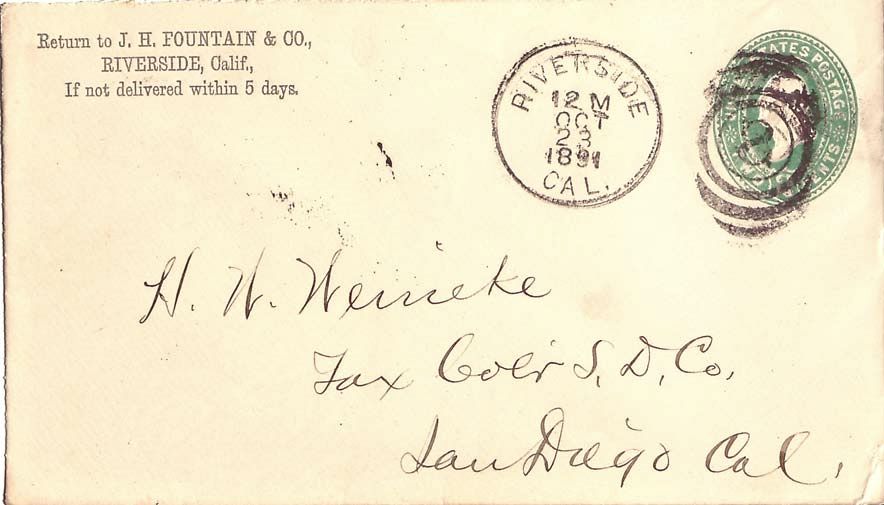 Return to J. H. FOUNTAIN & CO.,
RIVERSIDE, Calif.,
If not delivered within 5 days.
RIVERSIDE
12 M
OCT
23
1891
CAL.
STATES POSTAGE
CENTS
H. W. Weineke
Tax Col'r S. D. Co.
San Diego Cal.